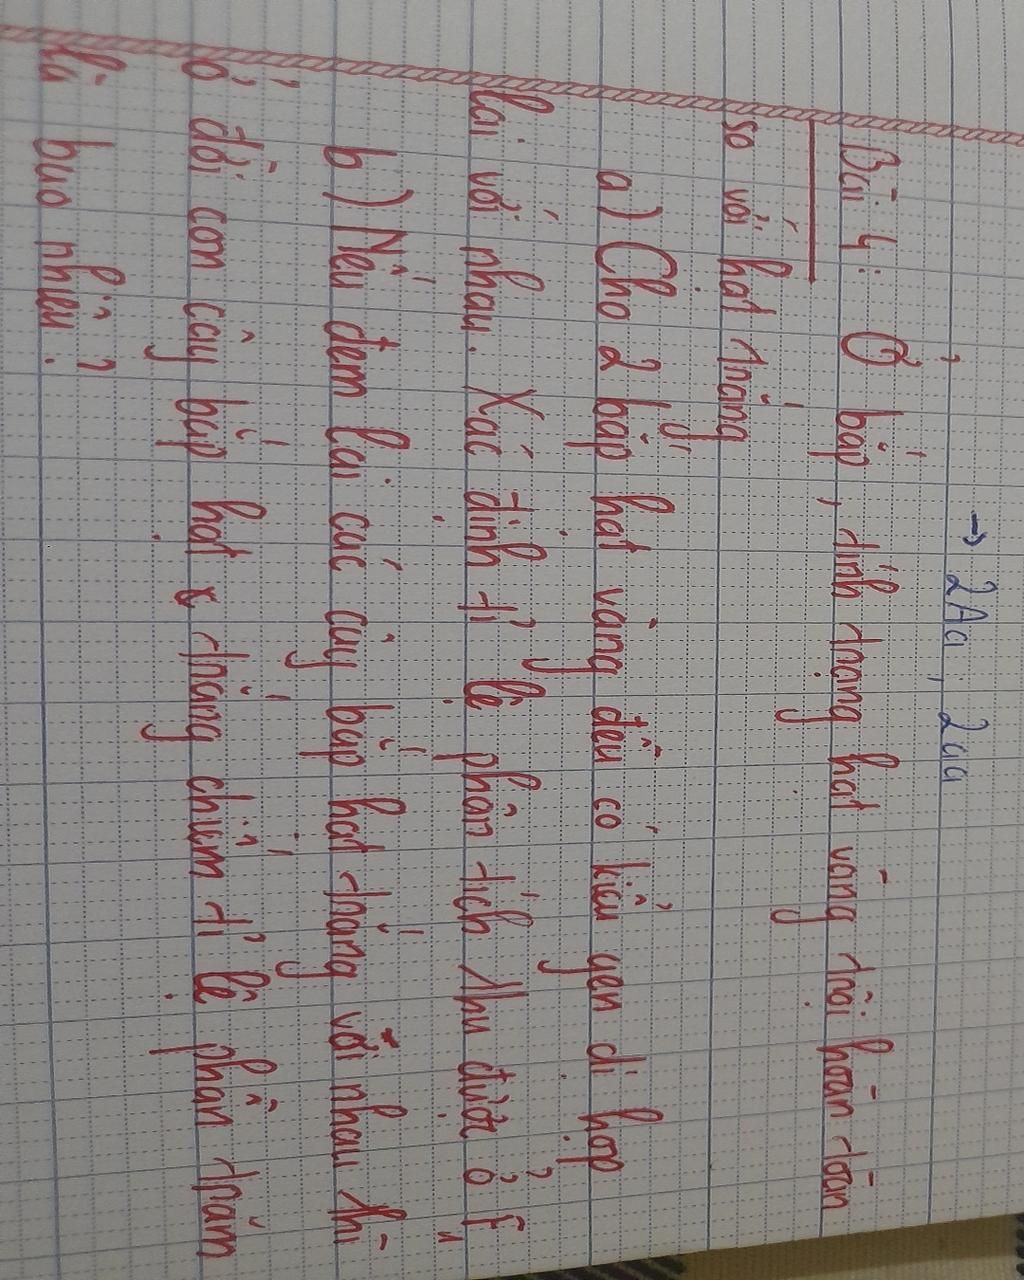 → 2Aa, 2aa
Bài 4: Ở bắp, tính trạng hạt vàng trội hoàn toàn
so với hạt trắng
a) Cho 2 bắp hạt vàng đều có kiểu gen dị hợp
lai với nhau. Xác định tỉ lệ phân tích thu được ở F₁
b) Nếu đem lai các cây bắp hạt trắng với nhau thì
ở đời con cây bắp hạt trắng chiếm tỉ lệ phần trăm
là bao nhiêu?